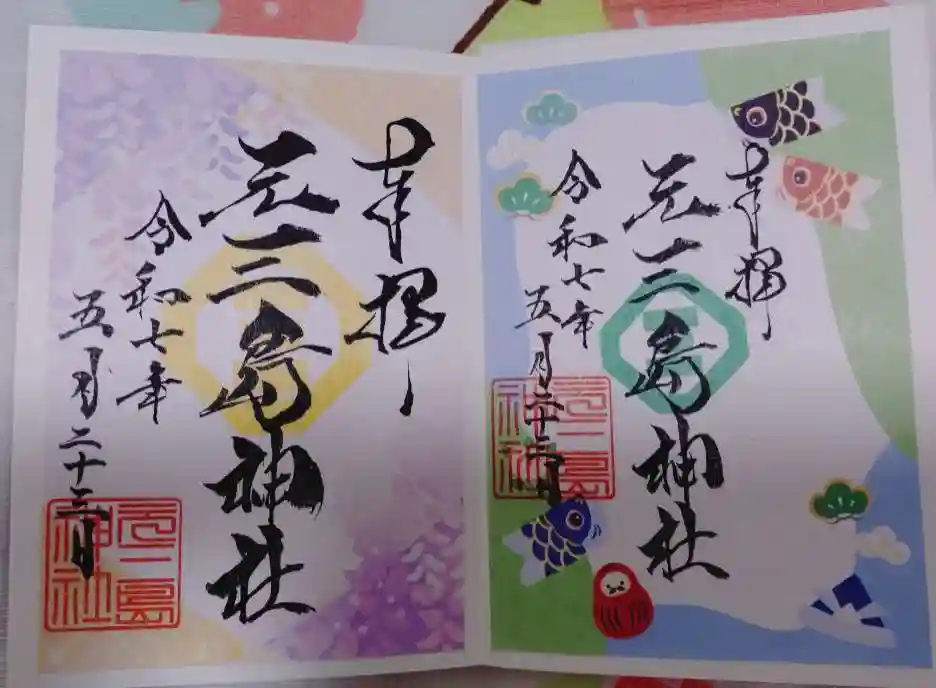 奉拝
元三島神社
令和七年
五月二十三日
元三島
神社
奉拝
元三島神社
令和七年
五月二十三日
元三島
神社